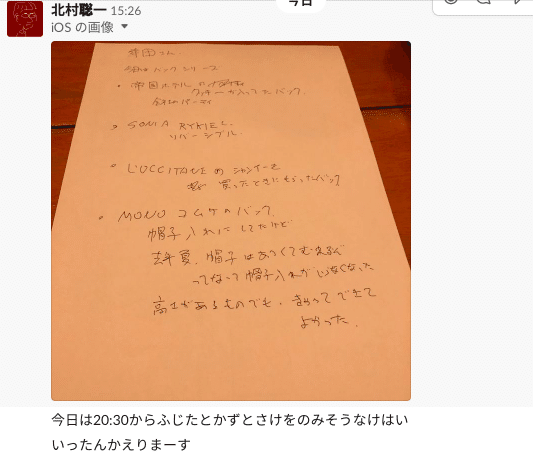 今日
北村聡一 15:26
iOS の画像
バッグシリーズ
・帝国ホテルの
クッキーが入ってたバッグ.
・SONIA RYKIEL.
リバーシブル.
・L'OCCITANEの
買ったときにもらったバッグ
・MONO コムサのバッグ.
帽子入れにしてたけど
去年夏、帽子はあつくてむれるぞ
ってなって帽子入れがいらなくなった
高さがあるものでも、きまってできて
よかった.
今日は20:30からふじたとかずとさけをのみそうなけはい
いったんかえりまーす